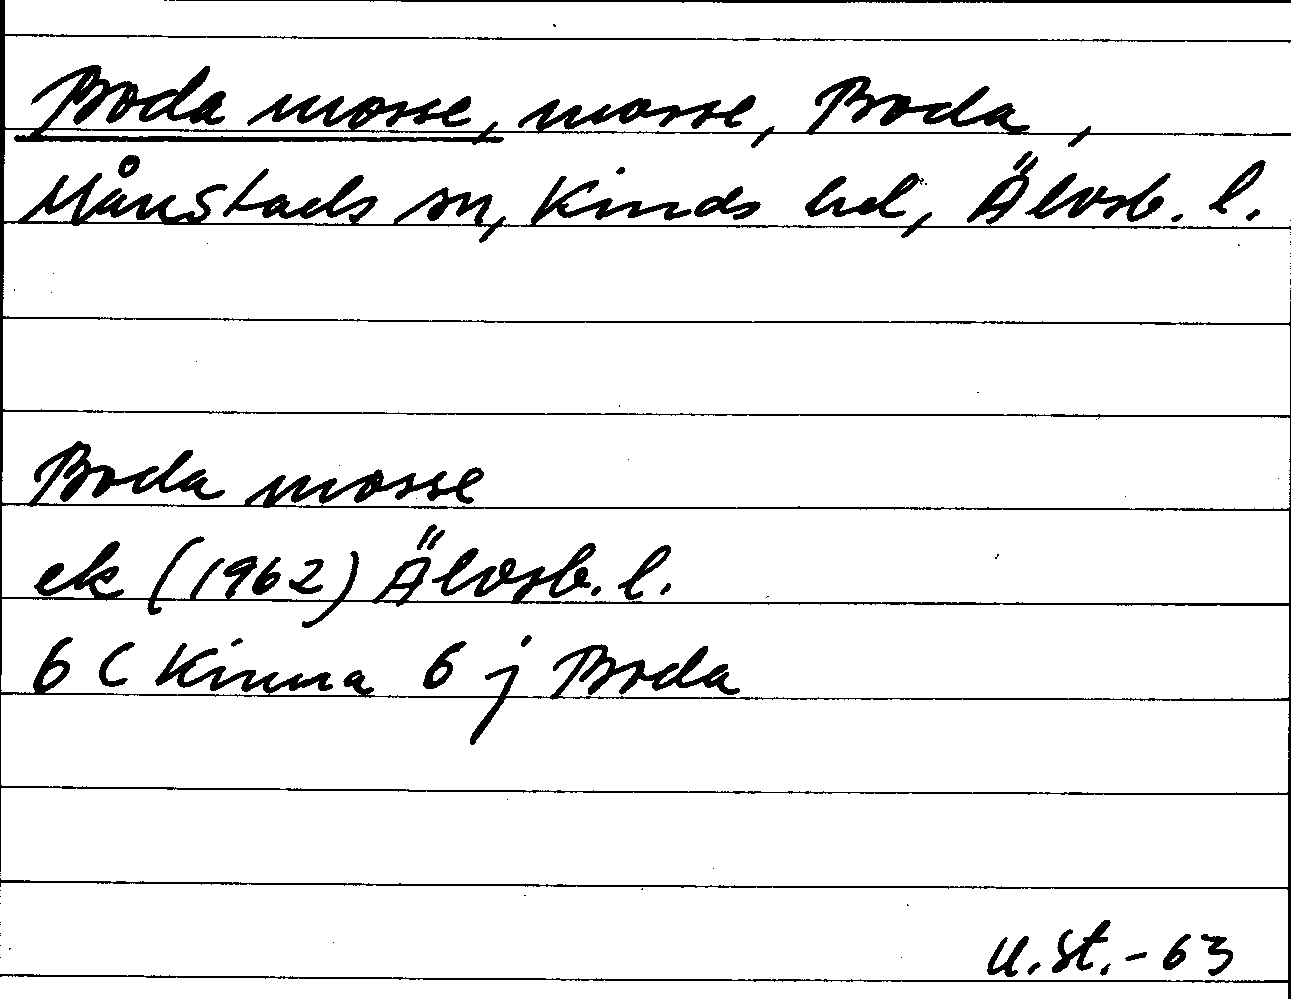 Boda mosse, mosse, Boda,
Månstads sn, Kinds hd, Älvsb. l.
Boda mosse
ek (1962) Älvsb. l.
6 C Kinna 6 j Boda
U. St. - 63